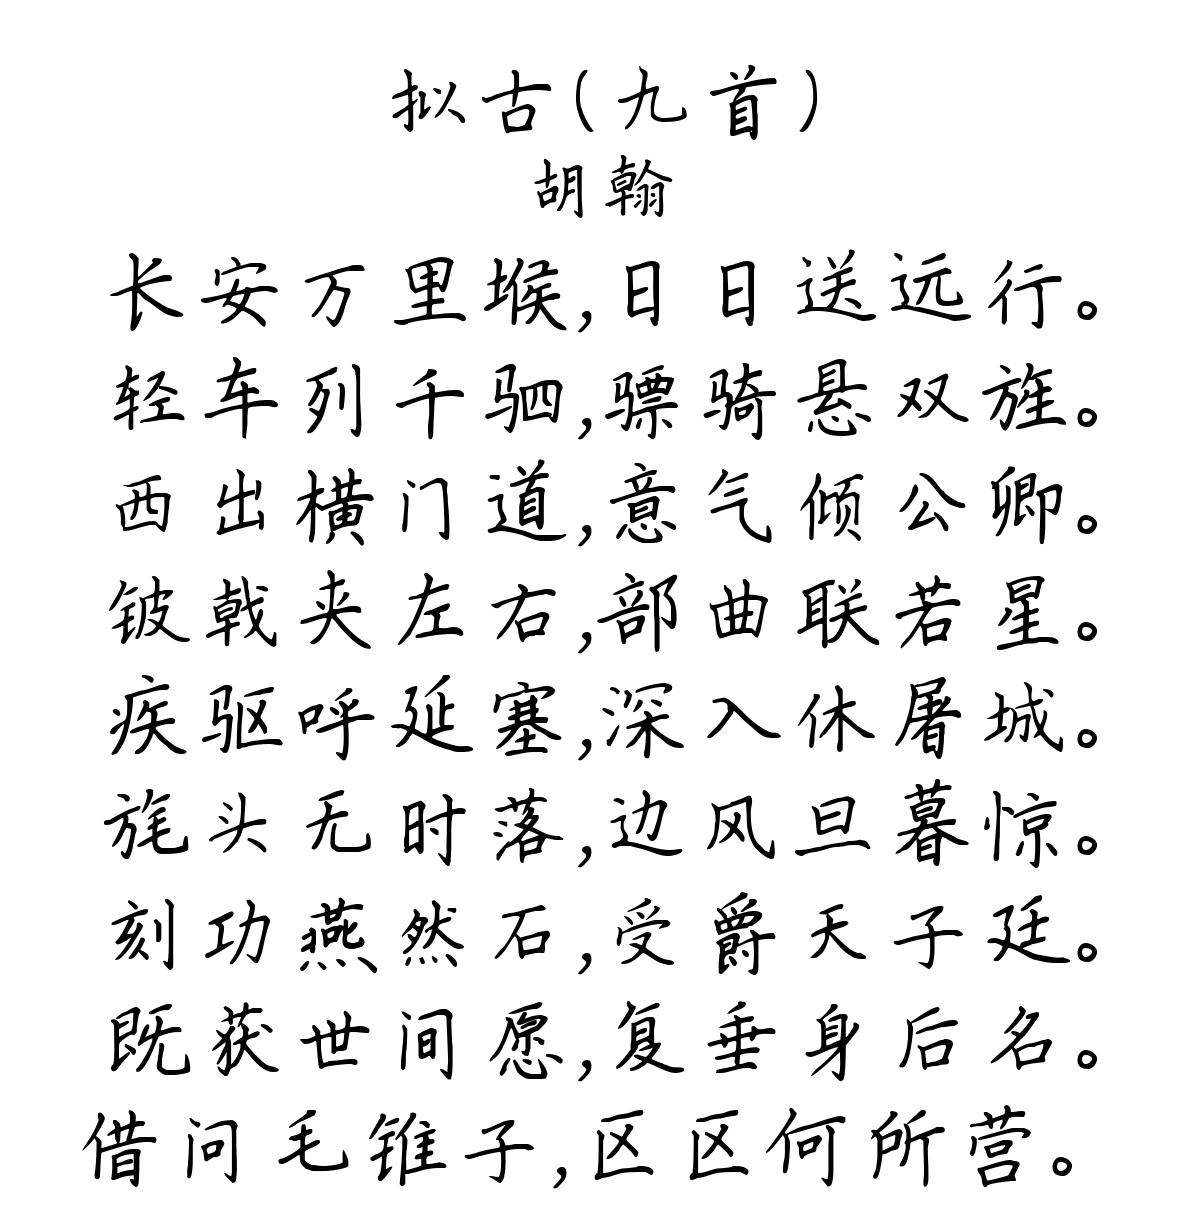 拟古(九首)
胡翰
长安万里堠,日日送远行。
轻车列千驷,骠骑悬双旌。
西出横门道,意气倾公卿。
铍戟夹左右,部曲联若星。
疾驱呼延塞,深入休屠城。
旄头无时落,边风旦暮惊。
刻功燕然石,受爵天子廷。
既获世间愿,复垂身后名。
借问毛锥子,区区何所营。